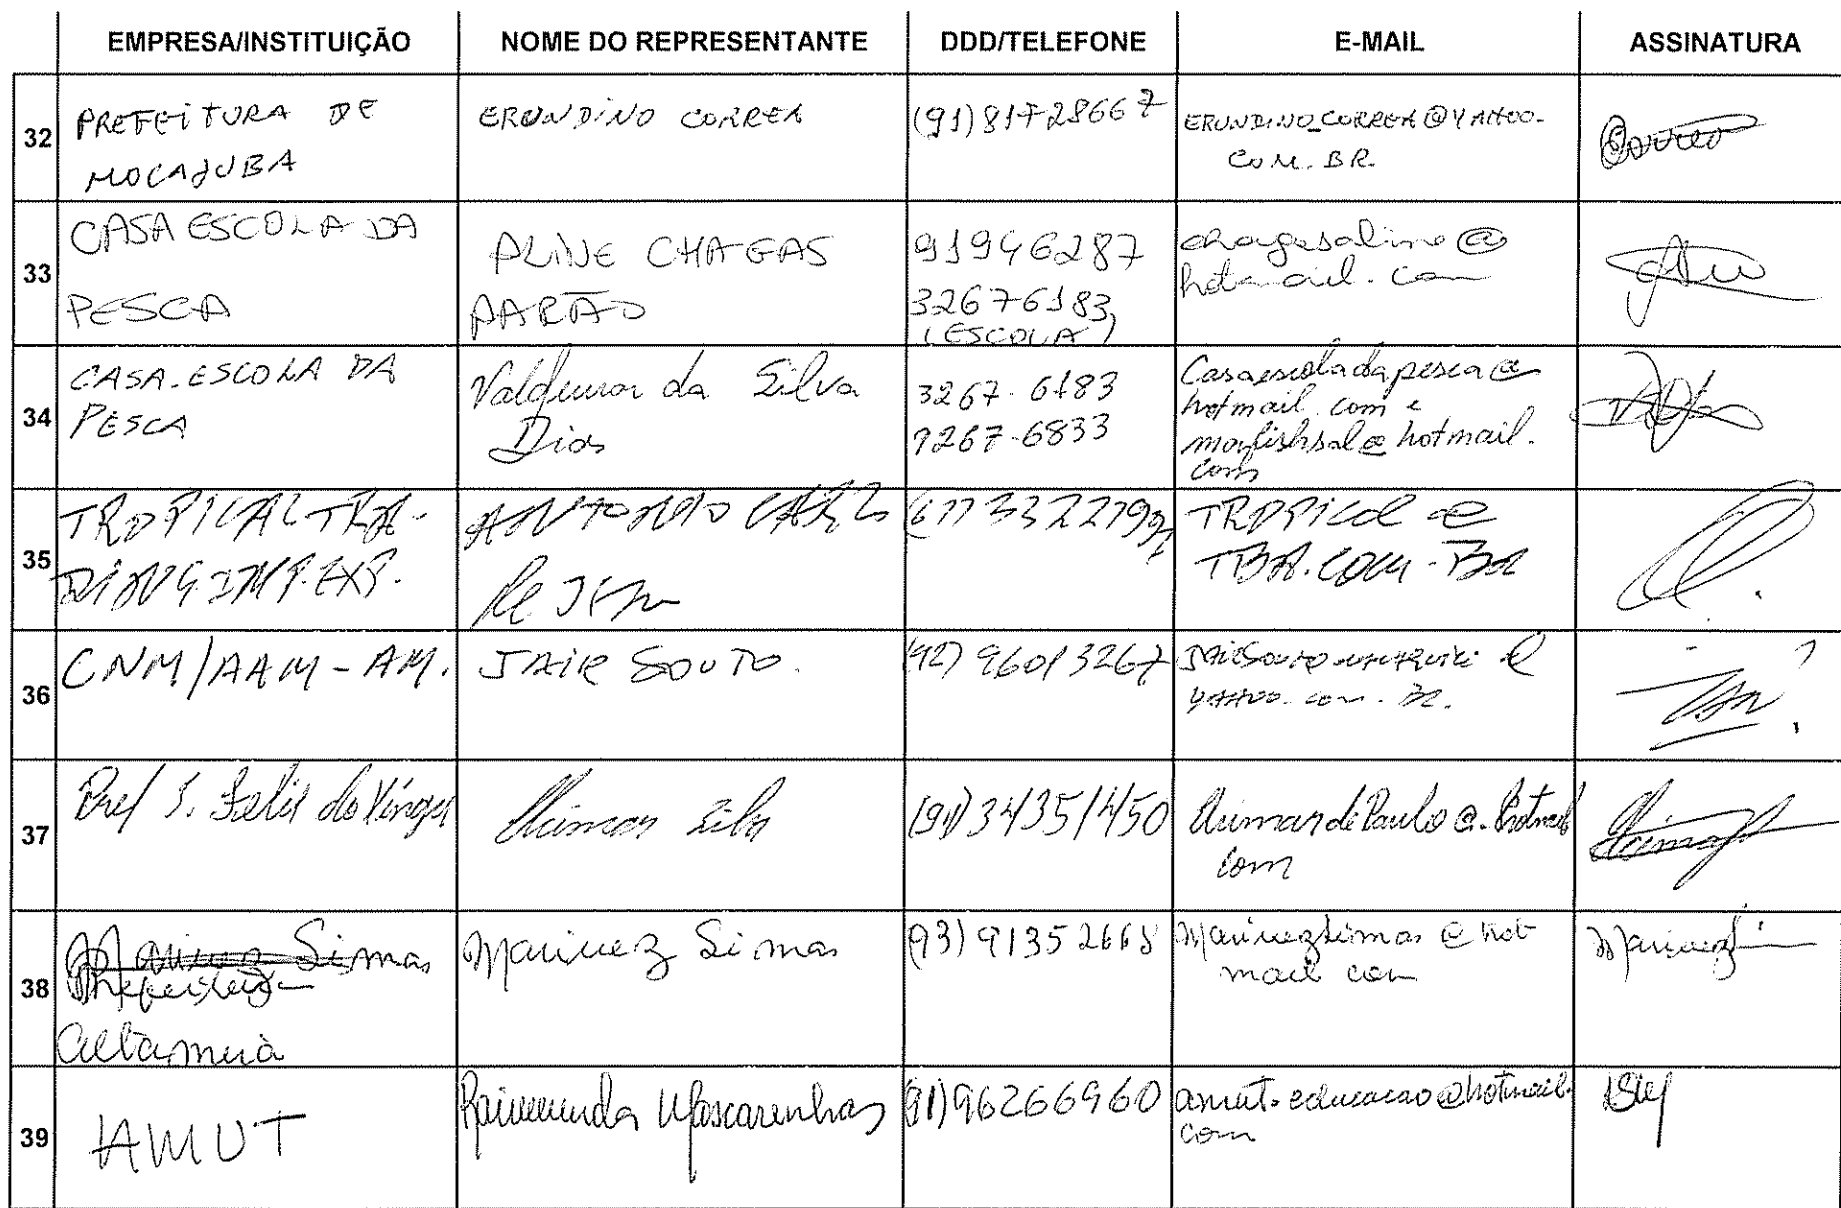 EMPRESA/INSTITUIÇÃO NOME DO REPRESENTANTE DDD/TELEFONE E-MAIL ASSINATURA
32 PREFEITURA DE MOCAJUBA ERUNDINO CORREA (91)81728667 ERUNDINO_CORREA@YAHOO.COM.BR
33 CASA ESCOLA DA PESCA ALINE CHAGAS AARÃO 91946287 32676183 (ESCOLA) chagasaline@hotmail.com
34 CASA ESCOLA DA PESCA Valdemar da Silva Dias 3267-6183 9267-6833 Casaescoladapesca@hotmail.com e marfishsal@hotmail.com
35 TROPICAL TRADING IMP. EXP. ANTONIO TROPICAL@TBA.COM.BR
36 CNM/AAM-AM. JAIR SOUTO. (92) 96013267 YAHOO.COM.BR.
37 Pref S. Felix do Xingu (91) 34351450 com
38 Prefeitura Altamira Marinez Simas (93) 91352665 Marinezsimas@hotmail com
39 AMUT Raimunda Mascarenhas (91)96266960 amut.educacao@hotmail.com